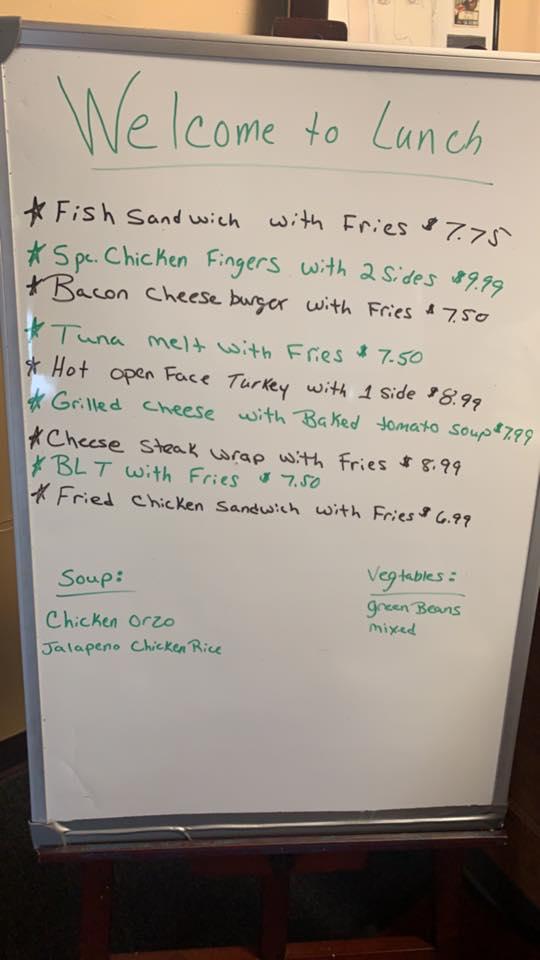 Welcome to Lunch
* Fish Sandwich with Fries $7.75
* 5pc. Chicken Fingers with 2 Sides $9.99
* Bacon Cheeseburger with Fries $7.50
* Tuna melt with Fries $7.50
* Hot open Face Turkey with 1 side $8.99
* Grilled cheese with Baked tomato soup $7.99
* Cheese Steak wrap with Fries $8.99
* BLT with Fries $7.50
* Fried Chicken Sandwich with Fries $6.99
Soup:
Chicken Orzo
Jalapeno Chicken Rice
Vegtables:
green Beans
mixed